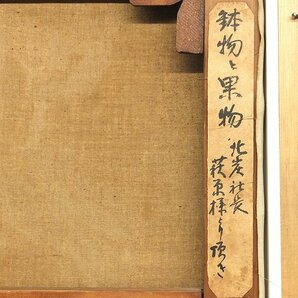 鉢物と果物
北炭社長
萩原様より頂き